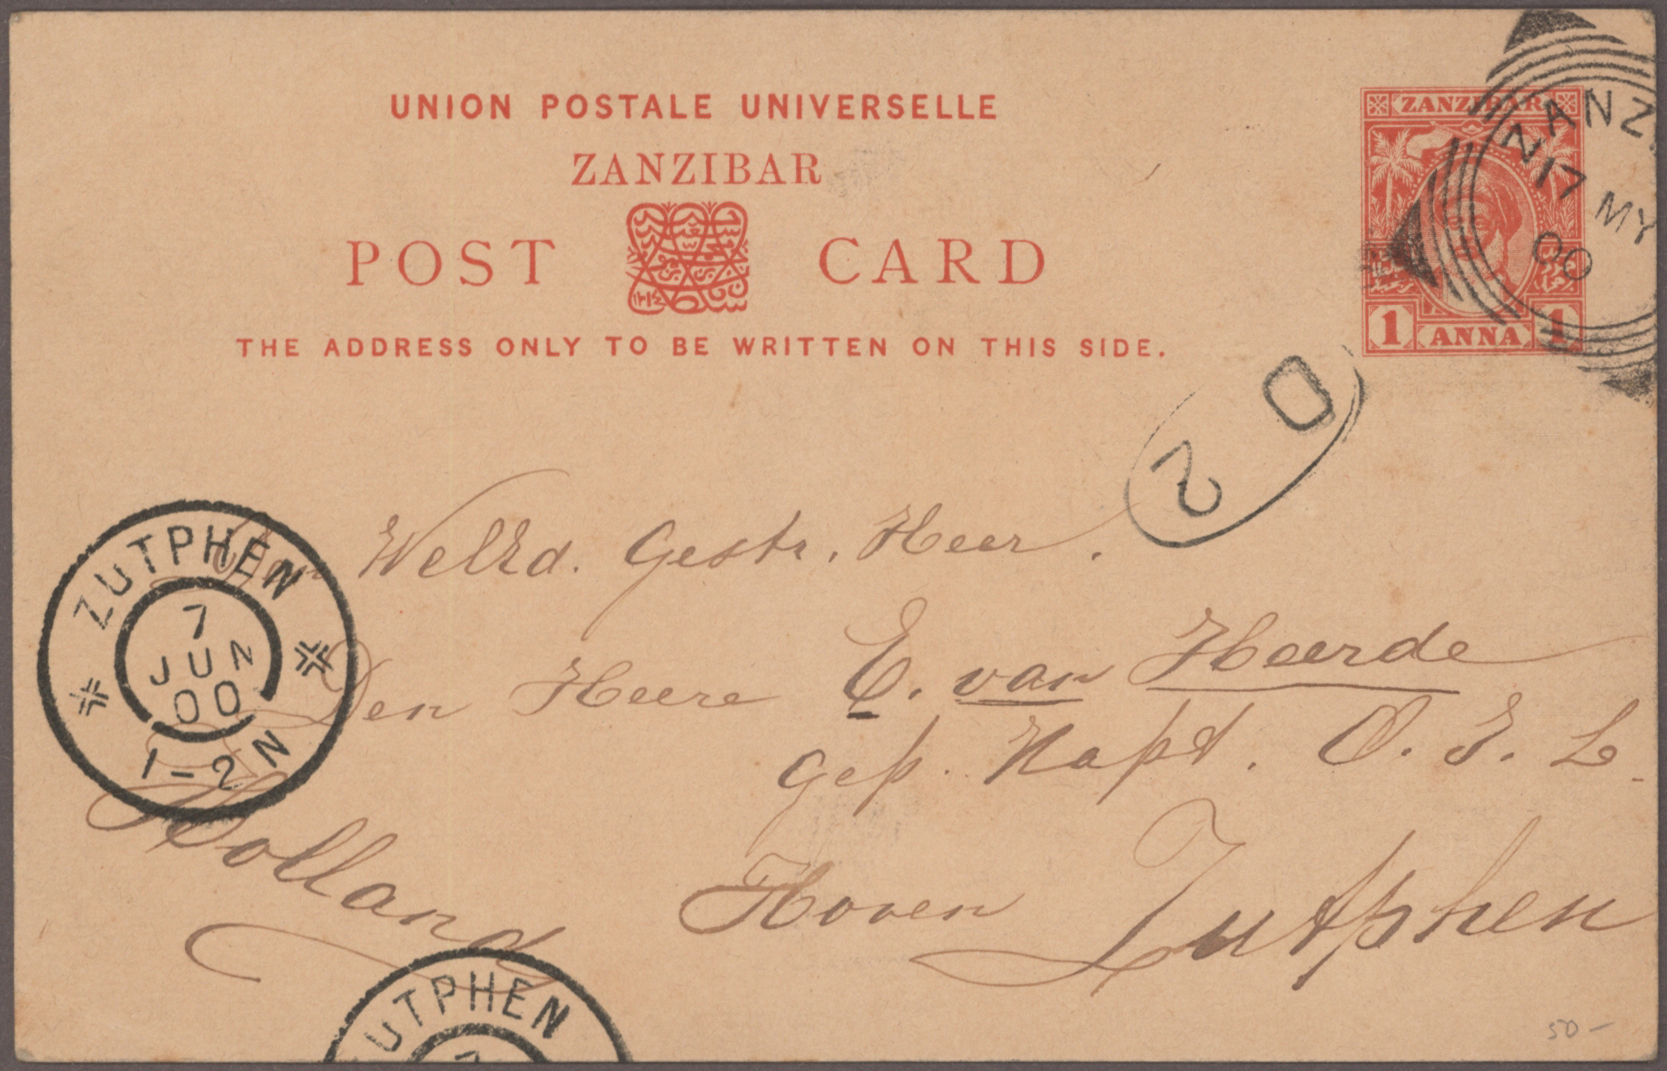 UNION POSTALE UNIVERSELLE
ZANZIBAR
POST CARD
THE ADDRESS ONLY TO BE WRITTEN ON THIS SIDE.
ZANZIBAR
1 ANNA 1
ZANZ
17 MY
00
20
Den Heere E. van Heerde
gep. Kapt. O. I. L.
Hoven Zutphen
Holland
ZUTPHEN
7
JUN
00
1-2 N
ZUTPHEN
50-